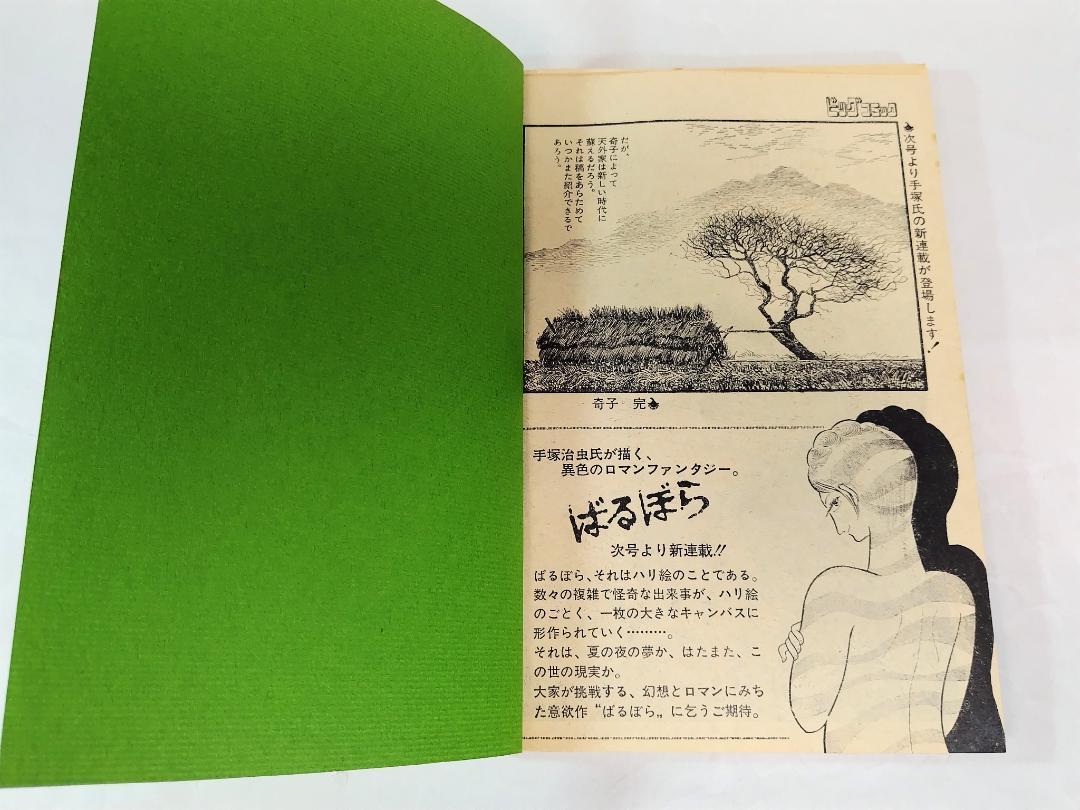 ビッグコミック
次号より手塚氏の新連載が登場します!
だが、
奇子によって
天外家は新しい時代に
蘇えるだろう。
それは稿をあらためて
いつかまた紹介できるで
あろう。
奇子 完
手塚治虫氏が描く、
異色のロマンファンタジー。
ばるぼら
次号より新連載!!
ばるぼら、それはハリ絵のことである。
数々の複雑で怪奇な出来事が、ハリ絵
のごとく、一枚の大きなキャンバスに
形作られていく………。
それは、夏の夜の夢か、はたまた、こ
の世の現実か。
大家が挑戦する、幻想とロマンにみち
た意欲作〝ばるぼら〟に乞うご期待。